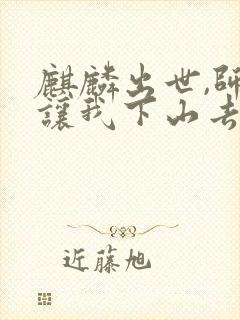 麒麟出世,師
讓我下山去
近藤旭